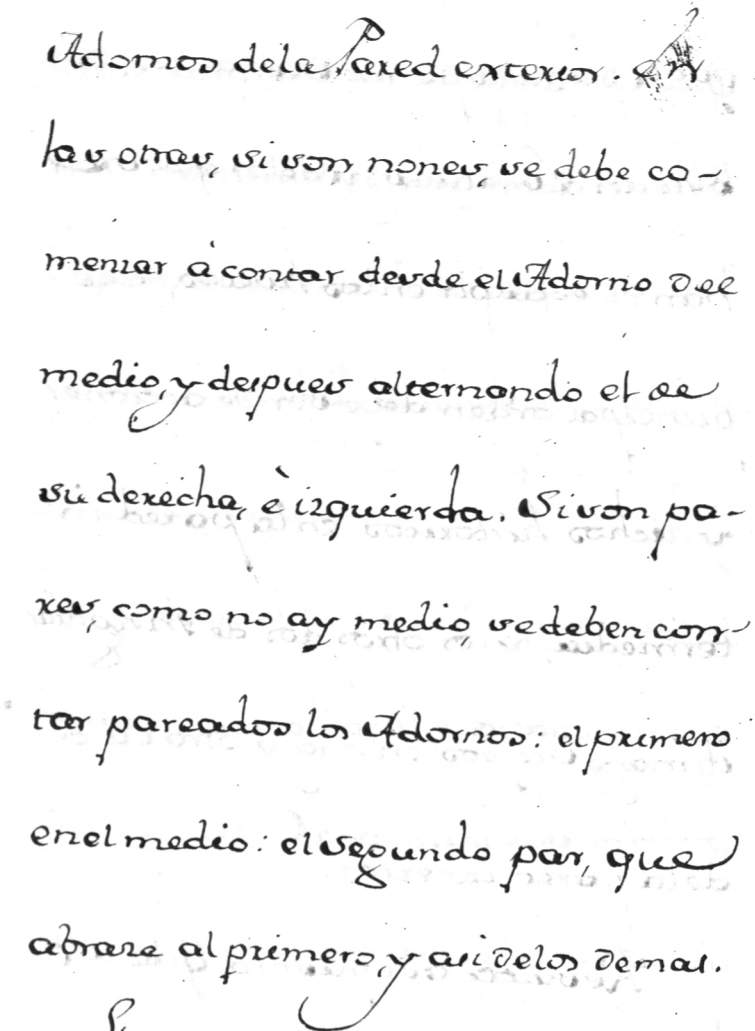 Adornos dela Pared exterior. en
las otras, si son nones, se debe co-
menzar à contar desde el Adorno del
medio, y despues alternando el de
su derecha, è izquierda. Si son pa-
res, como no ay medio, se deben con-
tar pareados los Adornos: el primero
enel medio: el segundo par, que
abraze al primero, y asi delos demas.